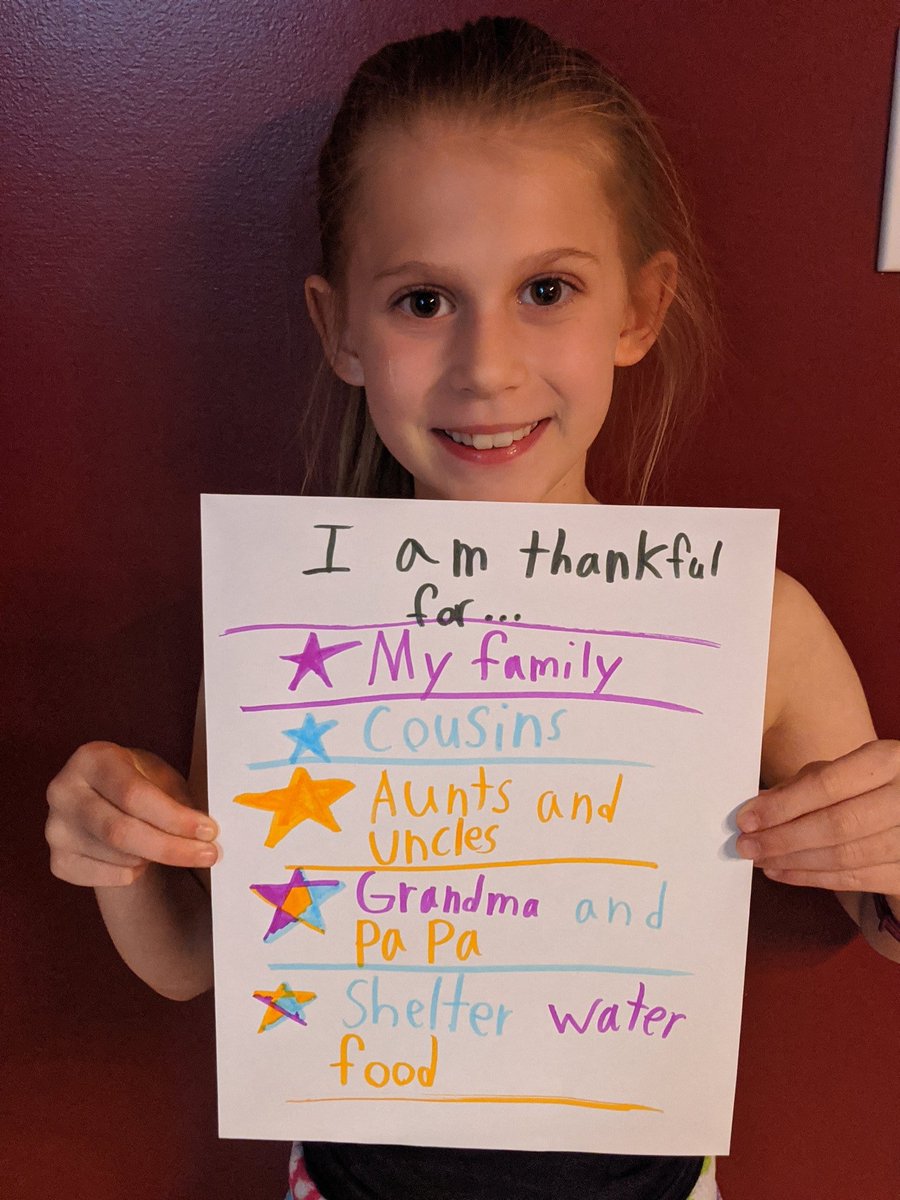 I am thankful
for...
My family
Cousins
Aunts and
uncles
Grandma and
Pa Pa
Shelter water
food